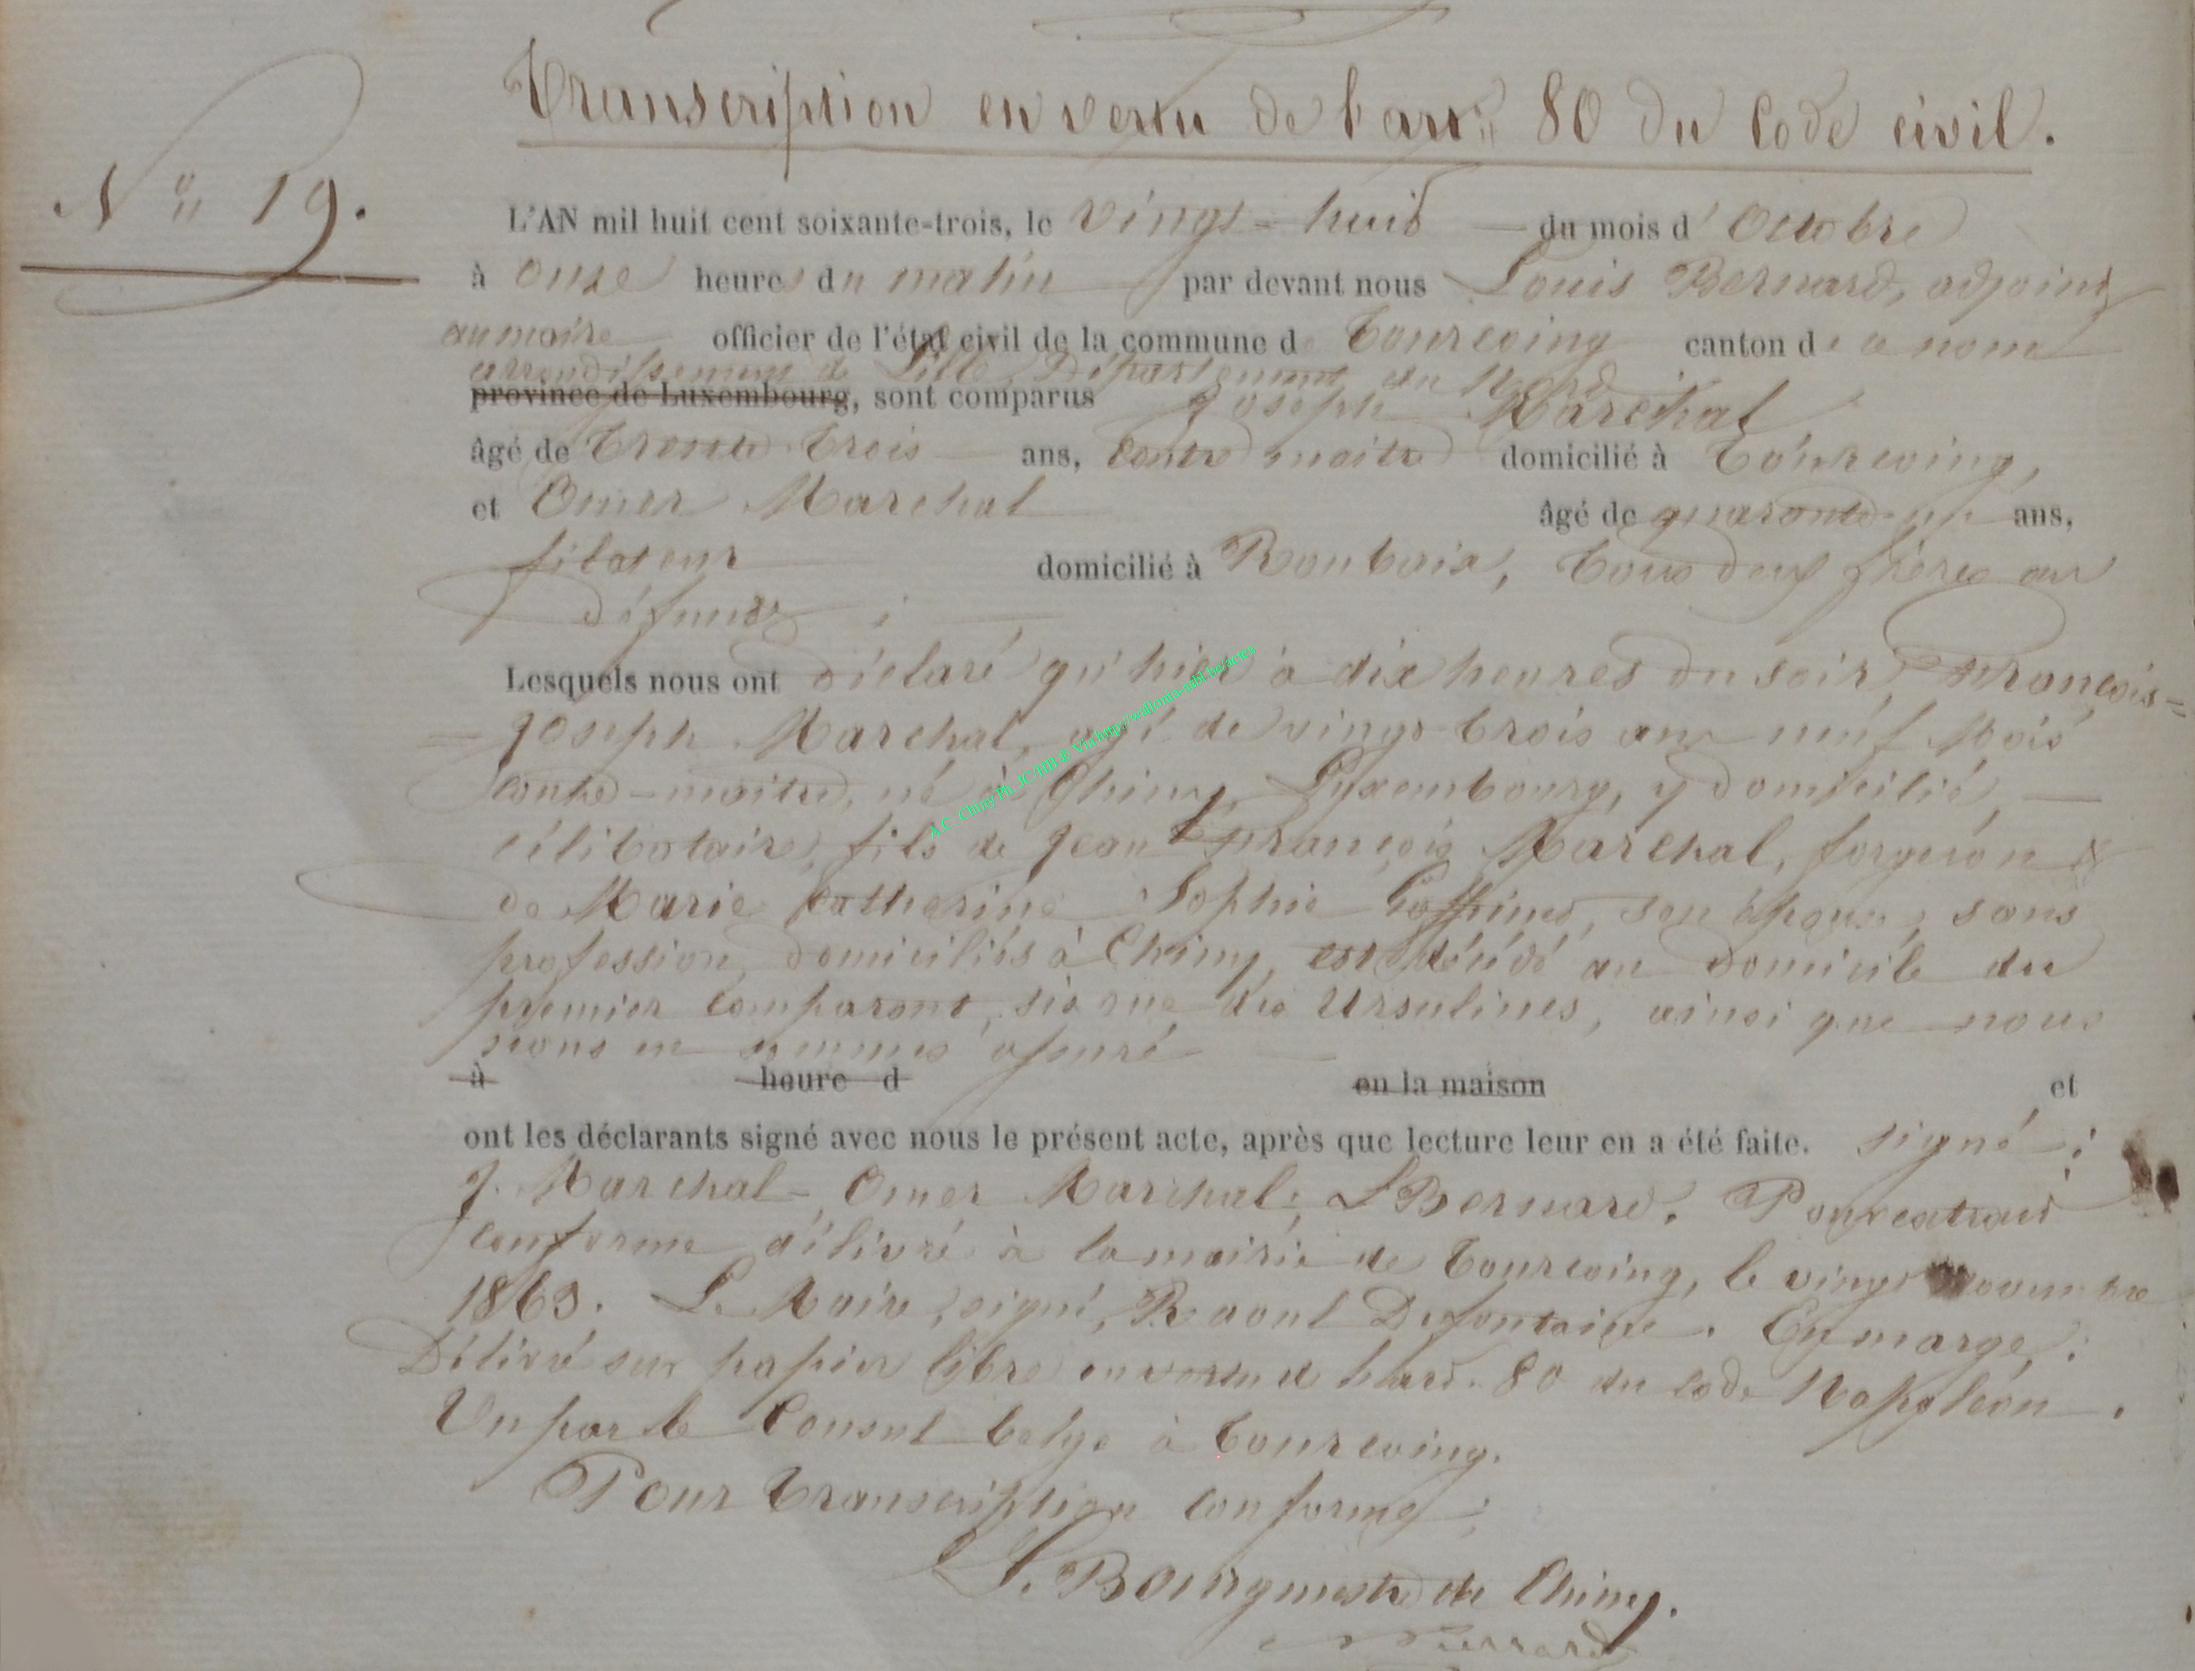 Transcription en vertu de l'art. 80 du Code civil.
N° 19.
L'AN mil huit cent soixante-trois, le vingt-huit du mois d'Octobre
à onze heures du matin par devant nous Louis Bernard, adjoint
au maire officier de l'état civil de la commune de Tourcoing canton de ce nom
arrondissement de Lille, Département du Nord
province de Luxembourg, sont comparus Joseph Marchal
âgé de trente trois ans, contre maitre domicilié à Tourcoing,
et Omer Marchal âgé de quarante-un ans,
filateur domicilié à Roubaix, tous deux frères au
défunt;
Lesquels nous ont déclaré qu'hier à dix heures du soir, François=
=Joseph Marchal, agé de vingt-trois ans neuf Mois
contre-maitre, né à Chiny, Luxembourg, y domicilié,
célibataire, fils de Jean François Marchal, forgeron &
de Marie Catherine Sophie, son épouse, sans
profession, domiciliés à Chiny, est décédé au domicile du
premier comparant, sis rue des Ursulines, ainsi que nous
nous en sommes assuré
à heure d en la maison et
ont les déclarants signé avec nous le présent acte, après que lecture leur en a été faite. signé:
J. Marchal, Omer Marchal, L Bernard. Pour extrait
conforme délivré à la mairie de Tourcoing, le vingt novembre
1863. Le Maire, signé, Raoul Defontaine. En marge:
Délivré sur papier libre en vertu de l'art. 80 du code Napoléon.
Vu par le Consul belge à Tourcoing.
Pour transcription conforme;
L. Bourgmestre de Chiny.
A.C. Chiny Ph. JC/HB & Via http://wallonia-asbl.be/actes